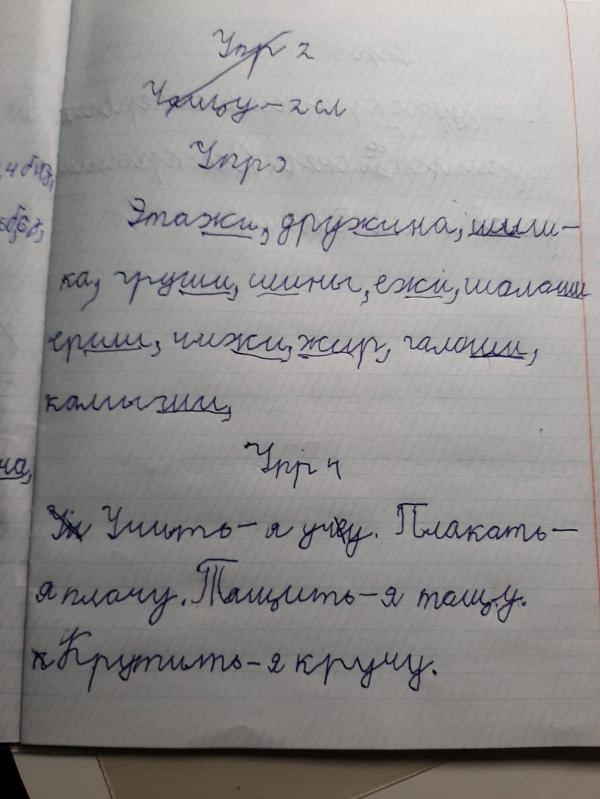 Упр 2
Чащу - 2 сл
Упр 3
Этажи, дружина, шиши-
ка, груши, шины, ежи, шалаши
ерши, чижи, жир, галоши,
камыши,
Упр 4
Учить - я учу. Плакать -
я плачу. Тащить - я тащу.
Крутить - я кручу.
ча,